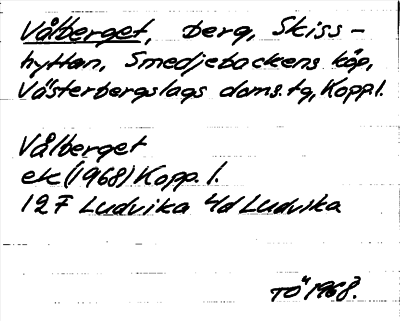 Vålberget, berg, Skiss-
hyttan, Smedjebackens köp,
Västerbergslags doms.tg, Kopp.l.
Vålberget
ek (1968) Kopp.l.
12F Ludvika 4d Ludvika
TÖ 1968.